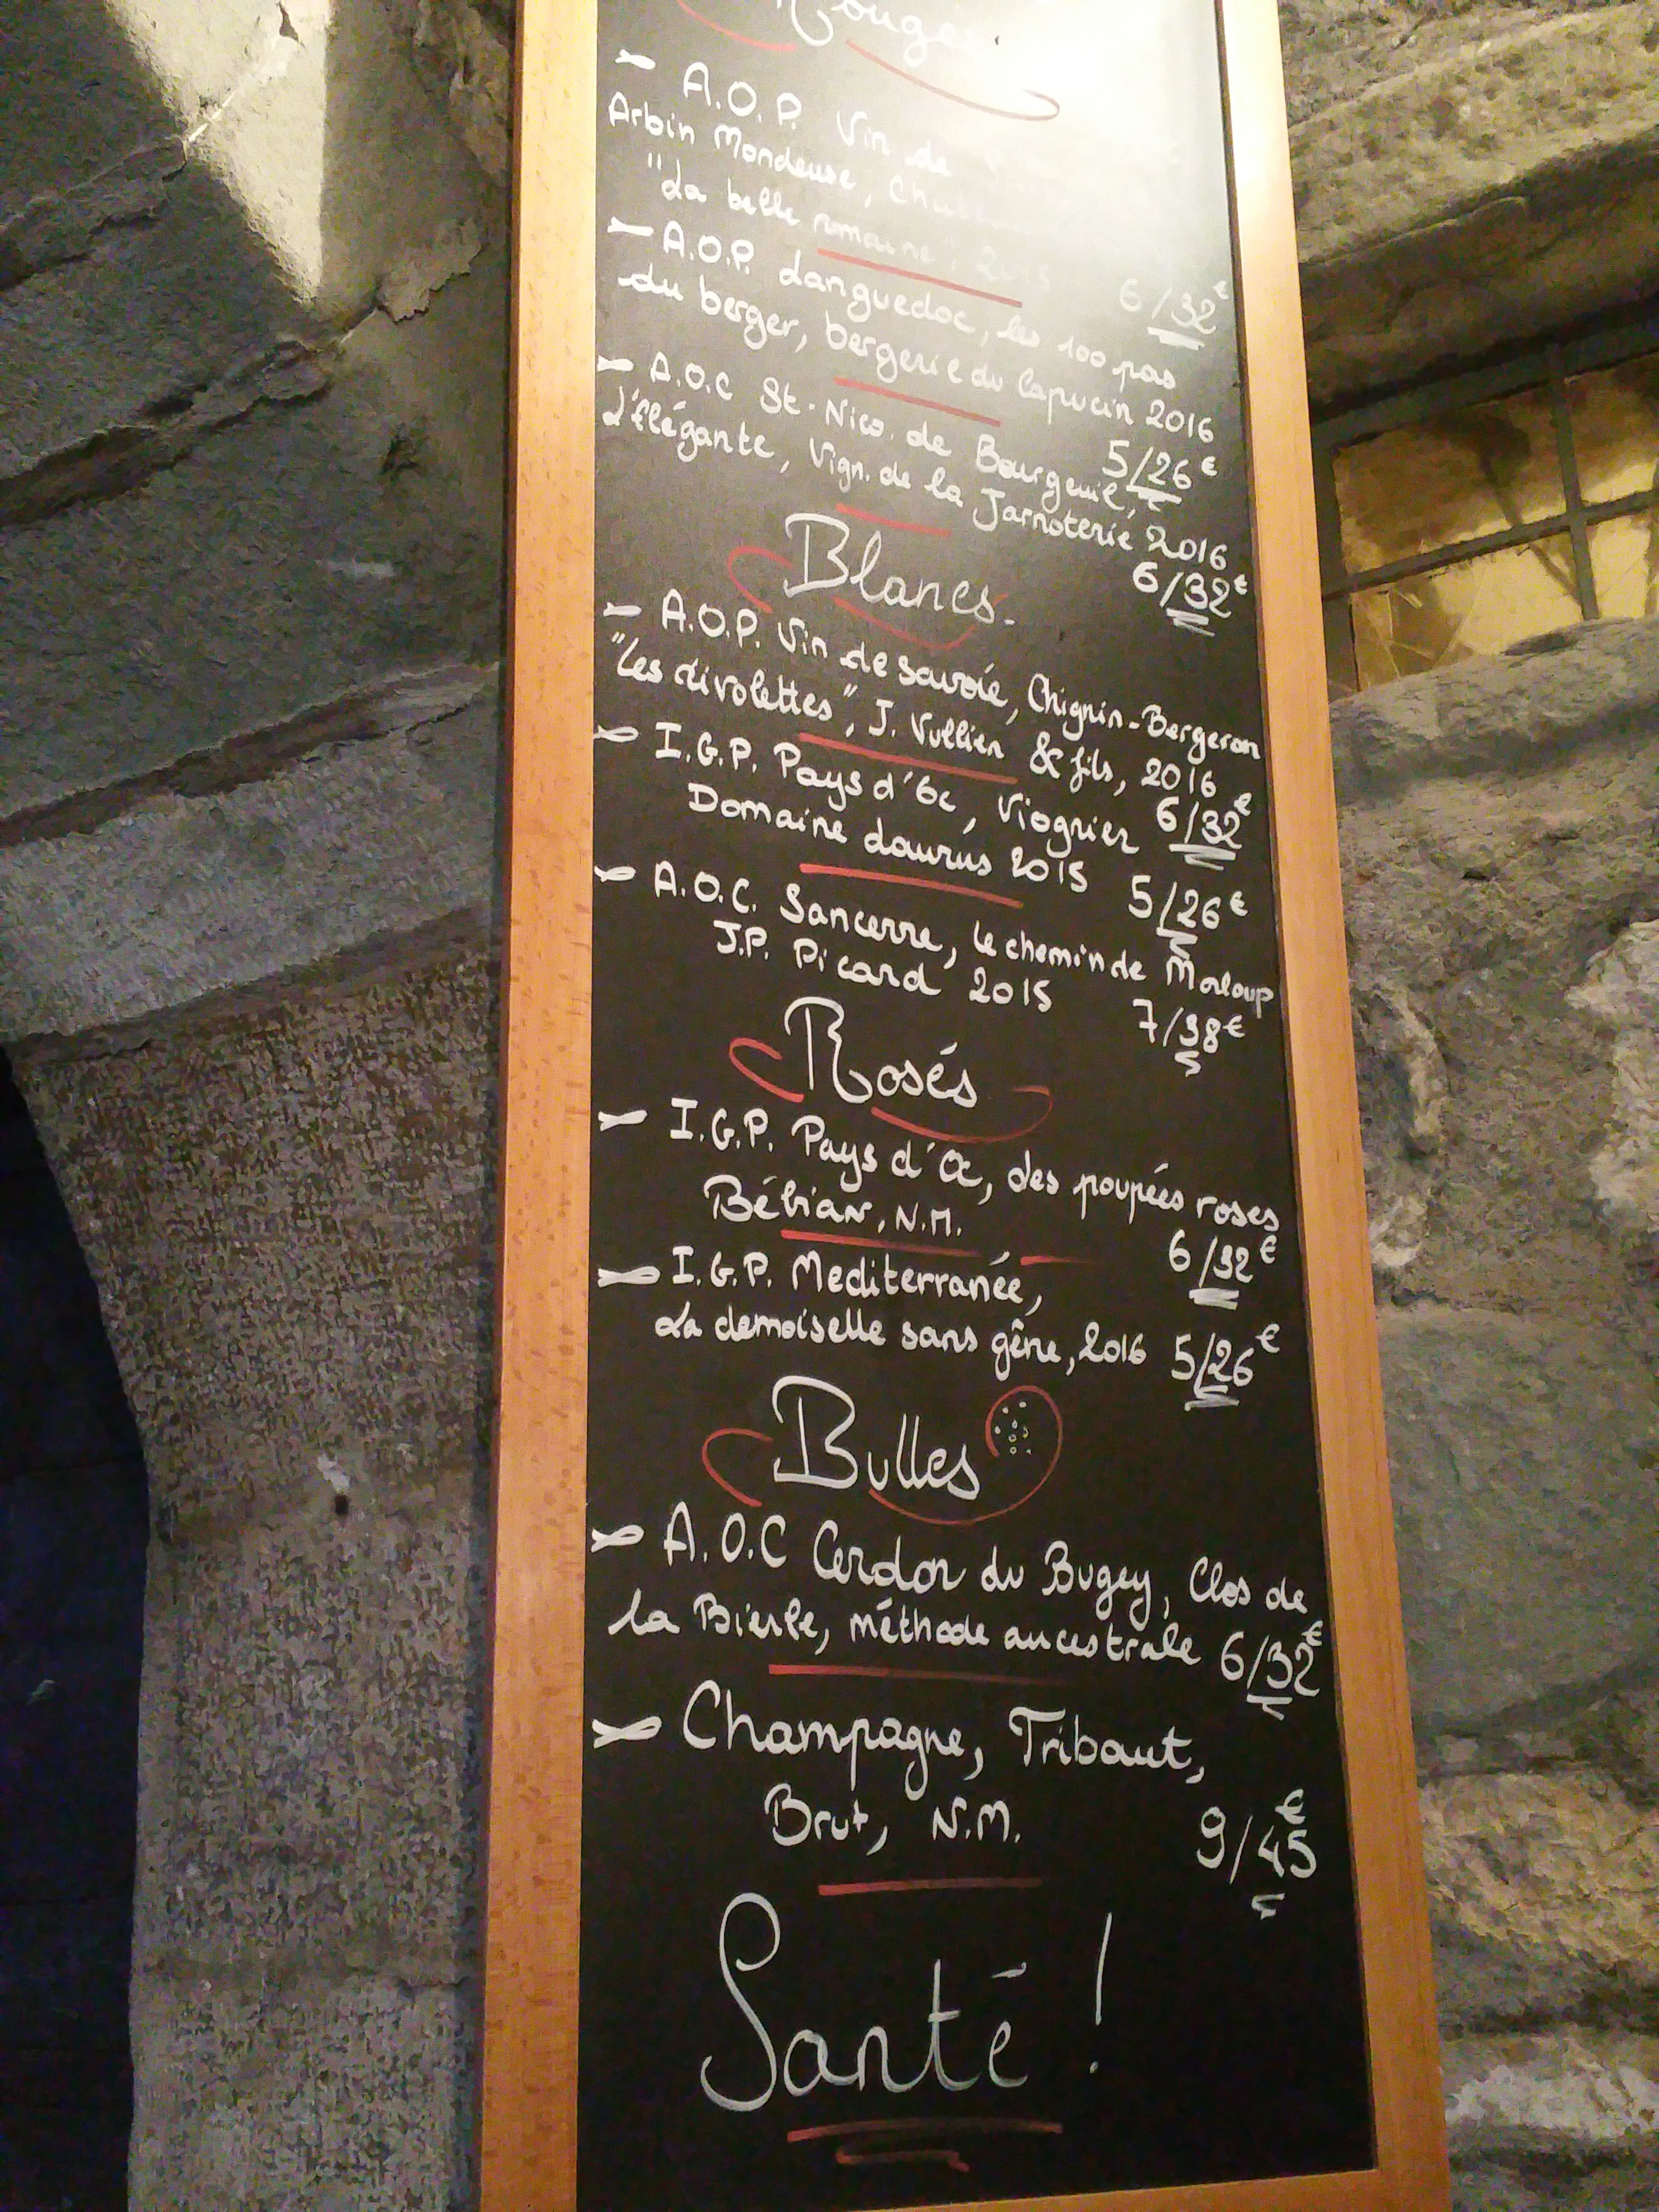 Rouges
A.O.P. Vin de
Arbin Mondeuse,
"La belle romaine", 2015
6/32€
A.O.P. Languedoc, les 100 pas
du berger, bergerie du Capucin 2016
5/26€
A.O.C St-Nico. de Bourgeuil,
L'élégante, Vign. de la Jarnoterie 2016
6/32€
Blancs.
A.O.P. Vin de savoie, Chignin-Bergeron
"Les divolettes", J. Vullien & fils, 2016
6/32€
I.G.P. Pays d'Oc, Viognier
Domaine Laurus 2015 5/26€
A.O.C. Sancerre, le chemin de Morloup
J.P. Picard 2015 7/38€
Rosés
I.G.P. Pays d'Oc, des poupées roses
Bébian, N.M. 6/32€
I.G.P. Mediterranée,
La demoiselle sans gêne, 2016 5/26€
Bulles
A.O.C Cerdon du Bugey, Clos de
la Bierle, méthode ancestrale 6/32€
Champagne, Tribaut,
Brut, N.M. 9/45€
Santé !